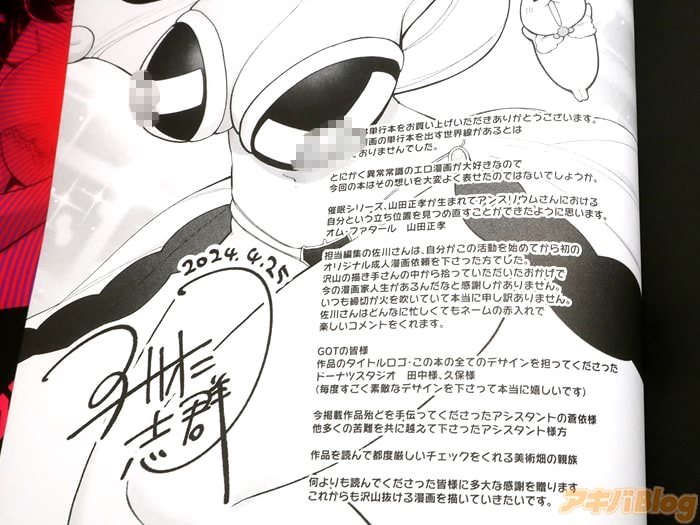 は単行本をお買い上げいただきありがとうございます。
漫画の単行本を出す世界線があるとは
ておりませんでした。
とにかく異常常識のエロ漫画が大好きなので
今回の本はその想いを大変よく表せたのではないでしょうか。
催眠シリーズ、山田正孝が生まれてアンスリウムさんにおける
自分という立ち位置を見つめ直すことができたように思います。
オム・ファタール 山田正孝
担当編集の佐川さんは、自分がこの活動を始めてから初の
オリジナル成人漫画依頼を下さった方でした。
沢山の描き手さんの中から拾っていただいたおかげで
今の漫画家人生があるんだなと感謝しかありません。
いつも締切が火を吹いていて本当に申し訳ありません。
佐川さんはどんなに忙しくてもネームの赤入れで
楽しいコメントをくれます。
GOTの皆様
作品のタイトルロゴ・この本の全てのデザインを担ってくださった
ドーナツスタジオ 田中様、久保様
(毎度すごく素敵なデザインを下さって本当に嬉しいです)
今掲載作品殆どを手伝ってくださったアシスタントの蒼依様
他多くの苦難を共に越えて下さったアシスタント様方
作品を読んで都度厳しいチェックをくれる美術畑の親族
何よりも読んでくださった皆様に多大な感謝を贈ります
これからも沢山抜ける漫画を描いていきたいです。
2024.4.25
志群
アキバBlog